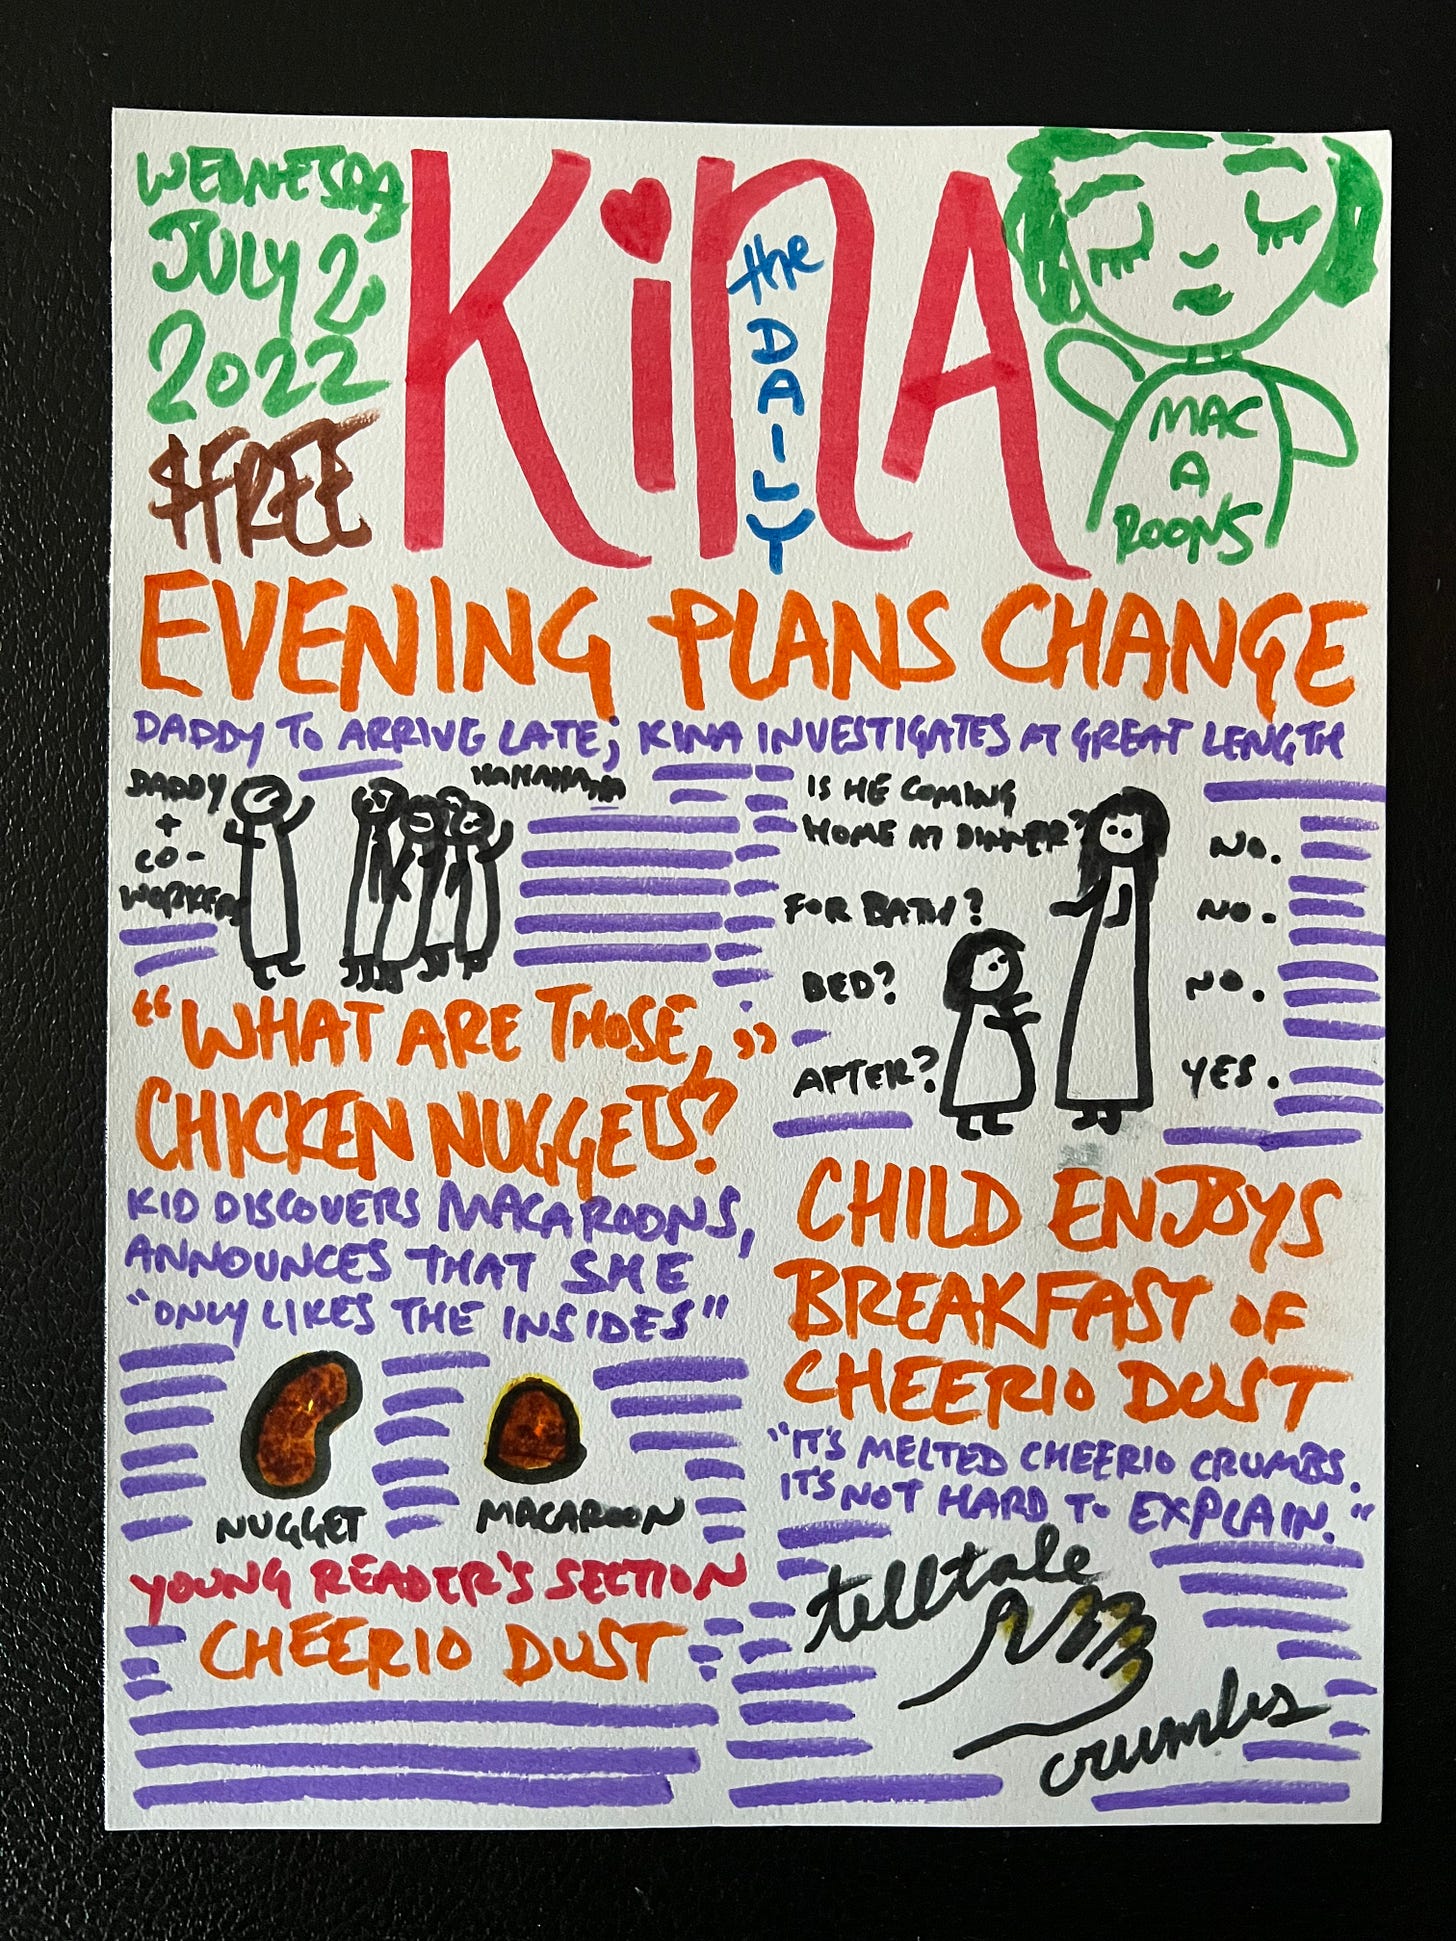 WEDNESDAY
JULY 20
2022
$FREE
KiNA
the
DAILY
MAC
A
ROONS
EVENING PLANS CHANGE
DADDY TO ARRIVE LATE; KINA INVESTIGATES AT GREAT LENGTH
DADDY
+
CO-
WORKERS
HAHAHAHA
IS HE COMING
HOME AT DINNER?
NO.
FOR BATH?
NO.
BED?
NO.
AFTER?
YES.
"WHAT ARE THOSE,"
CHICKEN NUGGETS?
KID DISCOVERS MACAROONS,
ANNOUNCES THAT SHE
"ONLY LIKES THE INSIDES"
NUGGET
MACAROON
YOUNG READER'S SECTION
CHEERIO DUST
CHILD ENJOYS
BREAKFAST OF
CHEERIO DUST
"IT'S MELTED CHEERIO CRUMBS.
IT'S NOT HARD TO EXPLAIN."
telltale
crumbs